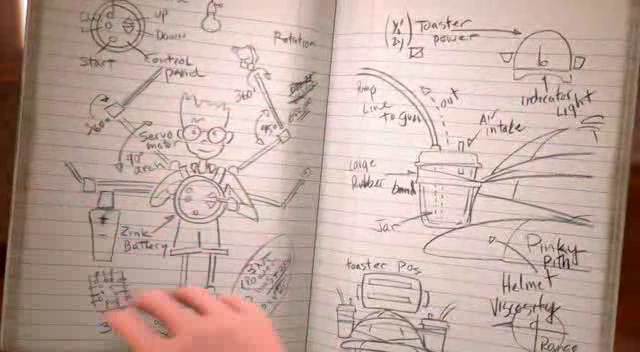 UP
Down
Start
Control
panel
Rotation
360°
360°
Servo
motor
90°
arch
45°
Zink
Battery
Toaster
power
6
indicator
Light
Line
to gun
Air
intake
Large
Rubber band
Jar
Pinky
Helmet
Viscosity
Range
toaster Pos